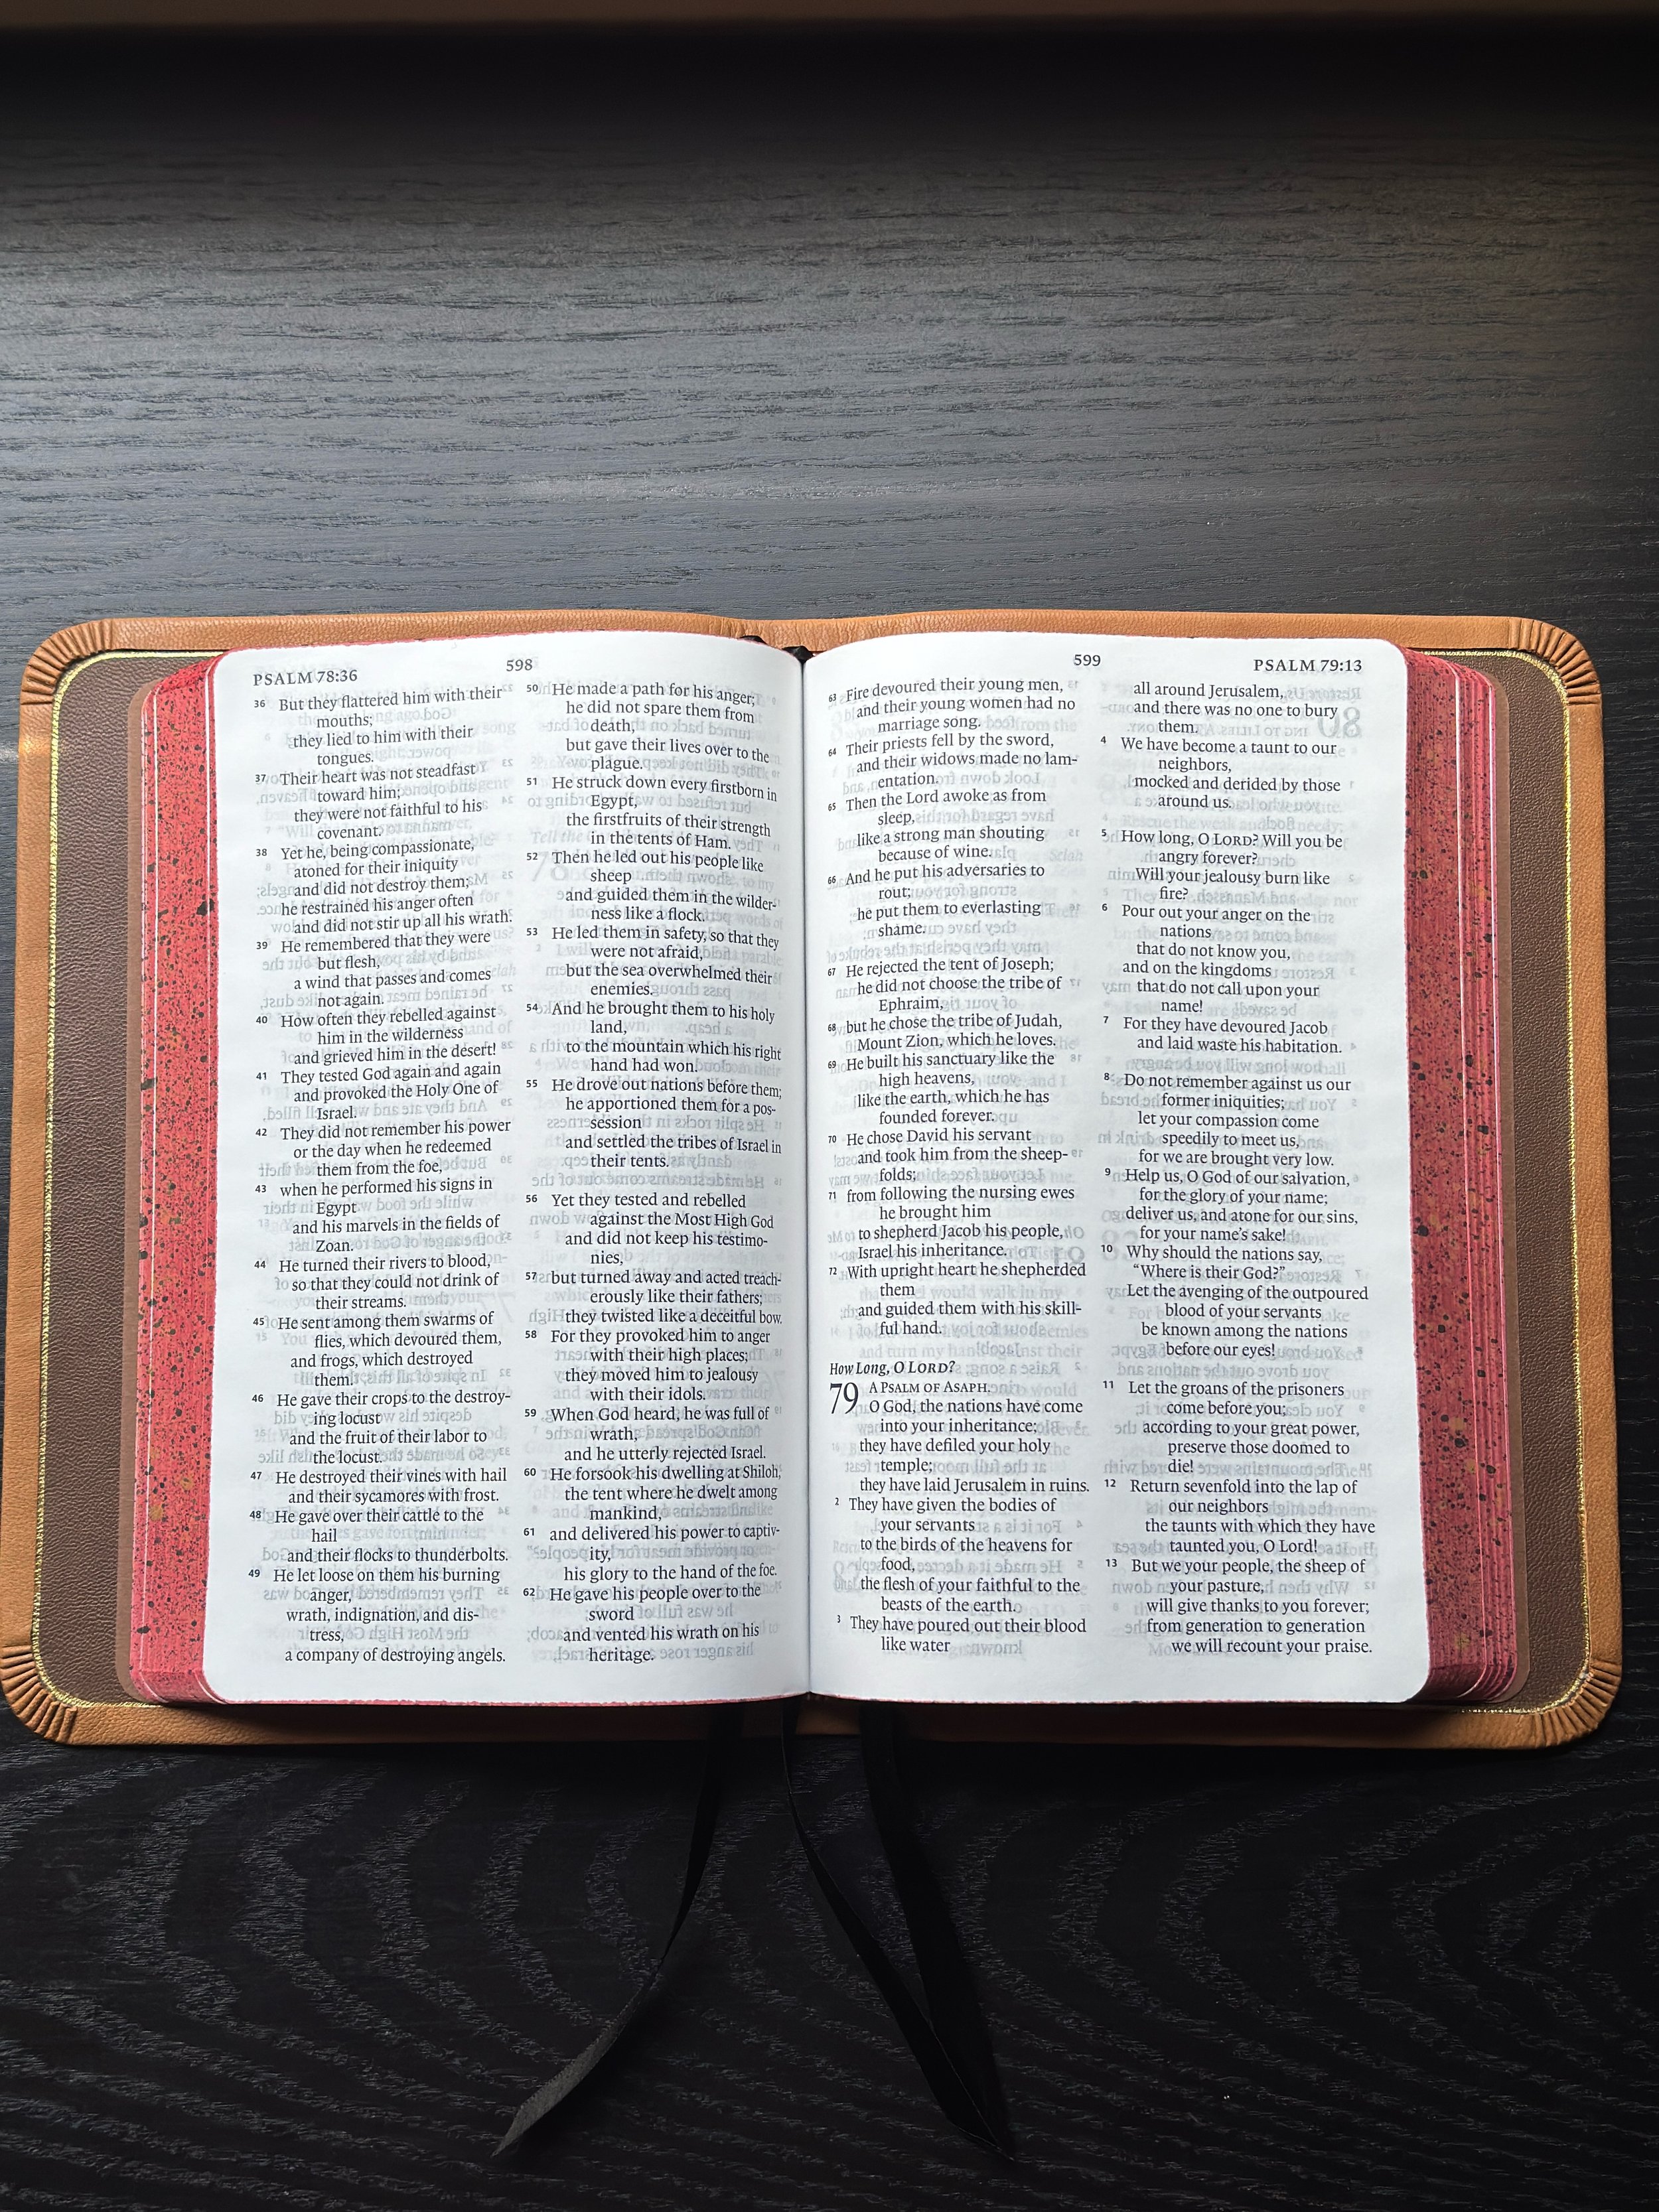 PSALM 78:36
598
36 But they flattered him with their
mouths;
they lied to him with their
tongues.
37 Their heart was not steadfast
toward him;
they were not faithful to his
covenant.
38 Yet he, being compassionate,
atoned for their iniquity
and did not destroy them;
he restrained his anger often
and did not stir up all his wrath.
39 He remembered that they were
but flesh,
a wind that passes and comes
not again.
40 How often they rebelled against
him in the wilderness
and grieved him in the desert!
41 They tested God again and again
and provoked the Holy One of
Israel.
42 They did not remember his power
or the day when he redeemed
them from the foe,
43 when he performed his signs in
Egypt
and his marvels in the fields of
Zoan.
44 He turned their rivers to blood,
so that they could not drink of
their streams.
45 He sent among them swarms of
flies, which devoured them,
and frogs, which destroyed
them.
46 He gave their crops to the destroy-
ing locust
and the fruit of their labor to
the locust.
47 He destroyed their vines with hail
and their sycamores with frost.
48 He gave over their cattle to the
hail
and their flocks to thunderbolts.
49 He let loose on them his burning
anger,
wrath, indignation, and dis-
tress,
a company of destroying angels.
50 He made a path for his anger;
he did not spare them from
death,
but gave their lives over to the
plague.
51 He struck down every firstborn in
Egypt,
the firstfruits of their strength
in the tents of Ham.
52 Then he led out his people like
sheep
and guided them in the wilder-
ness like a flock.
53 He led them in safety, so that they
were not afraid,
but the sea overwhelmed their
enemies.
54 And he brought them to his holy
land,
to the mountain which his right
hand had won.
55 He drove out nations before them;
he apportioned them for a pos-
session
and settled the tribes of Israel in
their tents.
56 Yet they tested and rebelled
against the Most High God
and did not keep his testimo-
nies,
57 but turned away and acted treach-
erously like their fathers;
they twisted like a deceitful bow.
58 For they provoked him to anger
with their high places;
they moved him to jealousy
with their idols.
59 When God heard, he was full of
wrath,
and he utterly rejected Israel.
60 He forsook his dwelling at Shiloh,
the tent where he dwelt among
mankind,
61 and delivered his power to captiv-
ity,
his glory to the hand of the foe.
62 He gave his people over to the
sword
and vented his wrath on his
heritage.
599
PSALM 79:13
63 Fire devoured their young men,
and their young women had no
marriage song.
64 Their priests fell by the sword,
and their widows made no lam-
entation.
65 Then the Lord awoke as from
sleep,
like a strong man shouting
because of wine.
66 And he put his adversaries to
rout;
he put them to everlasting
shame.
67 He rejected the tent of Joseph;
he did not choose the tribe of
Ephraim,
68 but he chose the tribe of Judah,
Mount Zion, which he loves.
69 He built his sanctuary like the
high heavens,
like the earth, which he has
founded forever.
70 He chose David his servant
and took him from the sheep-
folds;
71 from following the nursing ewes
he brought him
to shepherd Jacob his people,
Israel his inheritance.
72 With upright heart he shepherded
them
and guided them with his skill-
ful hand.
How Long, O LORD?
79 A PSALM OF ASAPH.
O God, the nations have come
into your inheritance;
they have defiled your holy
temple;
they have laid Jerusalem in ruins.
2 They have given the bodies of
your servants
to the birds of the heavens for
food,
the flesh of your faithful to the
beasts of the earth.
3 They have poured out their blood
like water
all around Jerusalem,
and there was no one to bury
them.
4 We have become a taunt to our
neighbors,
mocked and derided by those
around us.
5 How long, O LORD? Will you be
angry forever?
Will your jealousy burn like
fire?
6 Pour out your anger on the
nations
that do not know you,
and on the kingdoms
that do not call upon your
name!
7 For they have devoured Jacob
and laid waste his habitation.
8 Do not remember against us our
former iniquities;
let your compassion come
speedily to meet us,
for we are brought very low.
9 Help us, O God of our salvation,
for the glory of your name;
deliver us, and atone for our sins,
for your name's sake!
10 Why should the nations say,
“Where is their God?”
Let the avenging of the outpoured
blood of your servants
be known among the nations
before our eyes!
11 Let the groans of the prisoners
come before you;
according to your great power,
preserve those doomed to
die!
12 Return sevenfold into the lap of
our neighbors
the taunts with which they have
taunted you, O Lord!
13 But we your people, the sheep of
your pasture,
will give thanks to you forever;
from generation to generation
we will recount your praise.